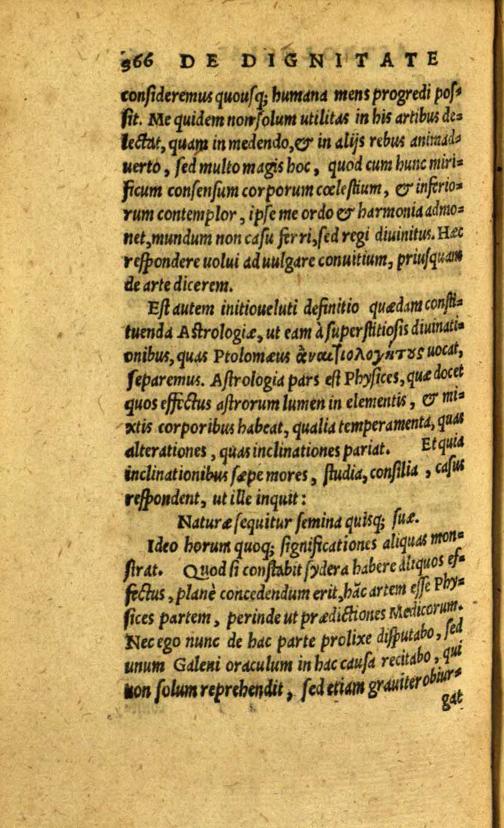 366 DE DIGNITATE
consideremus quousq; humana mens progredi pos-
sit. Me quidem non solum utilitas in his artibus de-
lectat, quam in medendo, & in alijs rebus animad-
uerto, sed multo magis hoc, quod cum hunc miri-
ficum consensum corporum cœlestium, & inferio-
rum contemplor, ipse me ordo & harmonia admo-
net, mundum non casu ferri, sed regi diuinitus. Hæc
respondere uolui ad uulgare conuitium, priusquam
de arte dicerem.
Est autem initio ueluti definitio quædam consti-
tuenda Astrologiæ, ut eam à superstitiosis diuinati-
onibus, quas Ptolomæus ἀναιτιολογήτους uocat,
separemus. Astrologia pars est Physices, quæ docet
quos effectus astrorum lumen in elementis, & mi-
xtis corporibus habeat, qualia temperamenta, quas
alterationes, quas inclinationes pariat. Et quia
inclinationibus sæpe mores, studia, consilia, casus
respondent, ut ille inquit:
Naturæ sequitur semina quisq; suæ.
Ideo horum quoq; significationes aliquas mon-
strat. Quod si constabit sydera habere aliquos ef-
fectus, planè concedendum erit, hãc artem esse Phy-
sices partem, perinde ut prædictiones Medicorum.
Nec ego nunc de hac parte prolixe disputabo, sed
unum Galeni oraculum in hac causa recitabo, qui
non solum reprehendit, sed etiam grauiter obiur-
gat